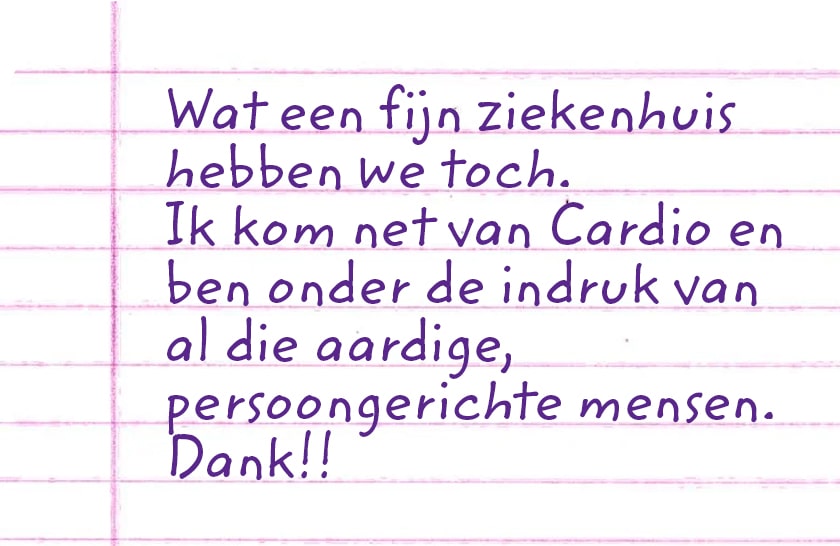 Wat een fijn ziekenhuis
hebben we toch.
Ik kom net van Cardio en
ben onder de indruk van
al die aardige,
persoongerichte mensen.
Dank!!